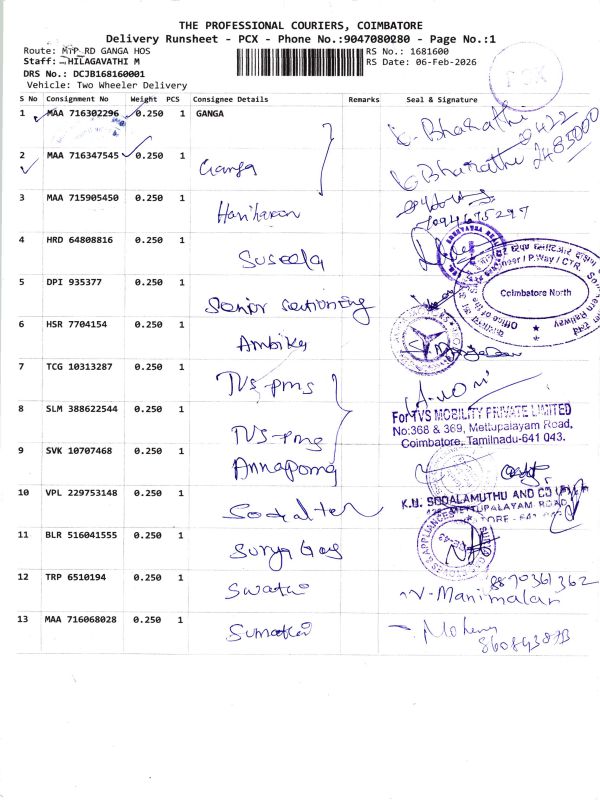 THE PROFESSIONAL COURIERS, COIMBATORE
Delivery Runsheet - PCX - Phone No.:9047080280 - Page No.:1
Route: MTP RD GANGA HOS
RS No.: 1681600
Staff: THILAGAVATHI M
RS Date: 06-Feb-2026
DRS No.: DCJB168160001
Vehicle: Two Wheeler Delivery
PCX
S No Consignment No Weight PCS Consignee Details Remarks Seal & Signature
1 MAA 716302296 0.250 1 GANGA G. Bharathi
2 MAA 716347545 0.250 1 Ganga G Bharathi
3 MAA 715905450 0.250 1 Hariharan
7094675297
4 HRD 64808816 0.250 1 Suseela
5 DPI 935377 0.250 1 Senior sectioning
Coimbatore North
6 HSR 7704154 0.250 1 Ambika
7 TCG 10313287 0.250 1 TVS-pms
8 SLM 388622544 0.250 1 TVS-pms
For TVS MOBILITY PRIVATE LIMITED
No:368 & 369, Mettupalayam Road,
Coimbatore, Tamilnadu-641 043.
9 SVK 10707468 0.250 1 Annaporna
10 VPL 229753148 0.250 1
K.U. SODALAMUTHU AND CO
METTUPALAYAM ROAD
11 BLR 516041555 0.250 1 Surya Gas
12 TRP 6510194 0.250 1 Swathi
8870361362
V-Manimalar
13 MAA 716068028 0.250 1 Sumathi